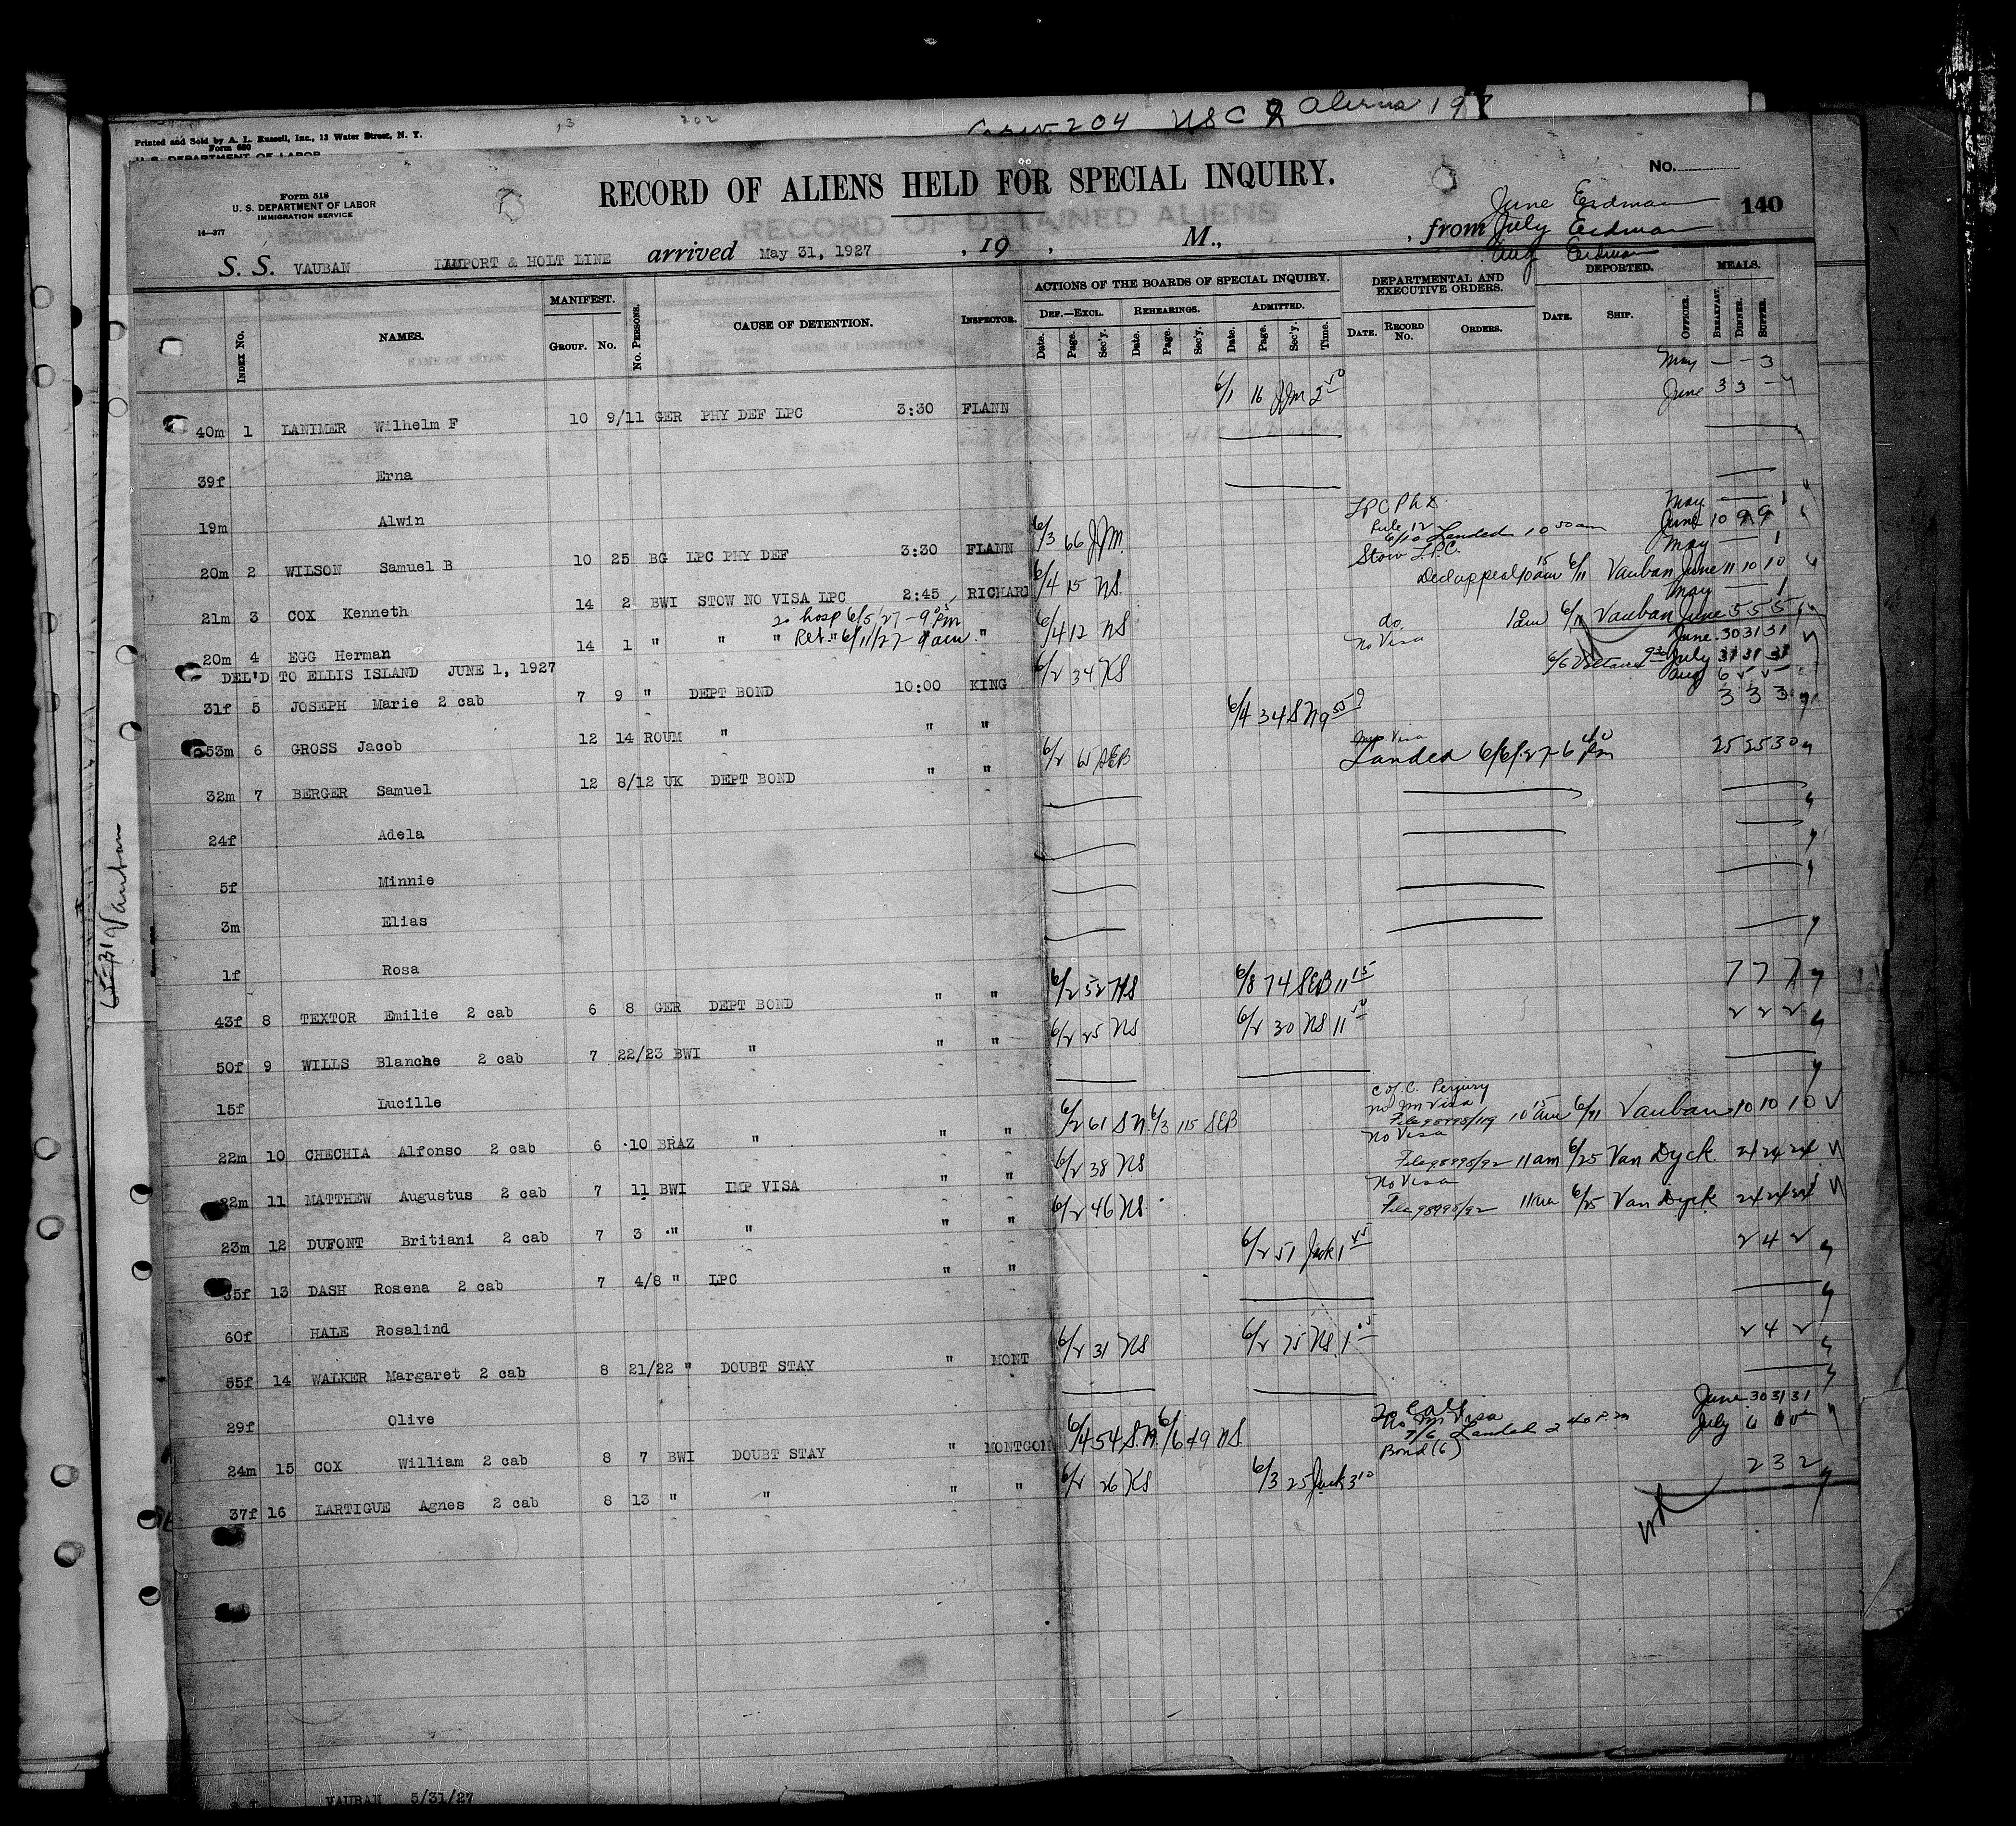 Printed and Sold by A. L. Russell, Inc., 13 Water Street, N. Y.
Form 630
U. S. DEPARTMENT OF LABOR
204 USC 2 Aliens 197
Form 518
U. S. DEPARTMENT OF LABOR
IMMIGRATION SERVICE
14—377
RECORD OF ALIENS HELD FOR SPECIAL INQUIRY.
RECORD OF DETAINED ALIENS
No. 140
June Erdman
from July Erdman
Aug Erdman
S. S. VAUBAN LAMPORT & HOLT LINE arrived May 31, 1927 , 19 , M.,
INDEX No. NAMES. MANIFEST. GROUP. No. No. PERSONS. CAUSE OF DETENTION. INSPECTOR.
ACTIONS OF THE BOARDS OF SPECIAL INQUIRY. DEF.—EXCL. Date. Page. Sec'y. REHEARINGS. Date. Page. Sec'y. ADMITTED. Date. Page. Sec'y. Time.
DEPARTMENTAL AND EXECUTIVE ORDERS. DATE. RECORD No. ORDERS. DEPORTED. DATE. SHIP. OFFICER. MEALS. BREAKFAST. DINNER. SUPPER.
May — — 3
40m 1 LANIMER Wilhelm F 10 9/11 GER PHY DEF LPC 3:30 FLANN 6/1 16 JJM 2 50 June 3 3 —
39f Erna
19m Alwin
LPC Ph D. May — 1
20m 2 WILSON Samuel B 10 25 BG LPC PHY DEF 3:30 FLANN 6/3 66 JJM Rule 12 6/10 Landed 10 50 am June 10 9 9
Stow L.P.C. May — 1
21m 3 COX Kenneth 14 2 BWI STOW NO VISA LPC 2:45 RICHARD 6/4 15 NS Ded appeal 10 15 am 6/11 Vauban June 11 10 10
to hosp 6/5/27 - 9 05 Pm
20m 4 EGG Herman 14 1 " " " Ret. " 6/11/27 - 9 am " 6/4 12 NS do. 10am 6/11 Vauban June 5 5 5
DEL'D TO ELLIS ISLAND JUNE 1, 1927
31f 5 JOSEPH Marie 2 cab 7 9 " DEPT BOND 10:00 KING 6/2 34 KS No Visa 6/6 Voltaire June 30 31 31
July 31 31 31
Aug 6
53m 6 GROSS Jacob 12 14 ROUM " " " 6/4 34 SN 9 55 3 3 3
32m 7 BERGER Samuel 12 8/12 UK DEPT BOND " " 6/2 65 SEB Imp Visa Landed 6/6/27 - 6 40 Pm 25 25 30
24f Adela
5f Minnie
3m Elias
1f Rosa
43f 8 TEXTOR Emilie 2 cab 6 8 GER DEPT BOND " " 6/2 52 NS 6/8 74 SEB 11 15 7 7 7
50f 9 WILLS Blanche 2 cab 7 22/23 BWI " " " 6/2 25 NS 6/2 30 NS 11 50 2 2 2
15f Lucille
22m 10 CHECHIA Alfonso 2 cab 6 10 BRAZ " " " 6/2 61 SN 6/3 115 SEB C of C. Perjury no Im Visa File 98995/119 10 15 am 6/11 Vauban 10 10 10
22m 11 MATTHEW Augustus 2 cab 7 11 BWI IMP VISA " " 6/2 38 NS No Visa File 98995/92 11am 6/25 Van Dyck 24 24 24
23m 12 DUFONT Britiani 2 cab 7 3 " " " " 6/2 46 NS No Visa File 98995/92 11am 6/25 Van Dyck 24 24 24
35f 13 DASH Rosena 2 cab 7 4/8 " LPC " " 6/2 51 Jack 1 45 2 4 2
60f HALE Rosalind
55f 14 WALKER Margaret 2 cab 8 21/22 " DOUBT STAY " MONT 6/2 31 NS 6/2 75 NS 1 05 2 4 2
29f Olive
24m 15 COX William 2 cab 8 7 BWI DOUBT STAY " MONTGOM 6/4 54 SN 6/6 49 NS to Call No Im Visa 7/6 Landed 2 40 P.m Bond (6) June 30 31 31
July 6
37f 16 LARTIGUE Agnes 2 cab 8 13 " " " " 6/2 26 KS 6/3 25 Jack 3 10 2 3 2
5-31 Vauban
VAUBAN 5/31/27